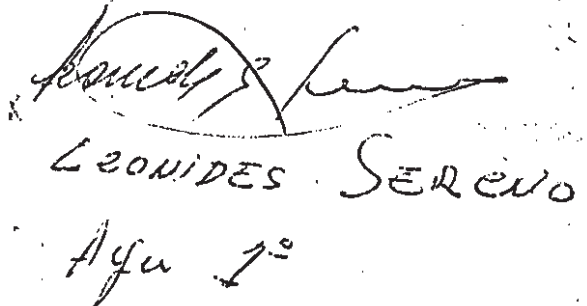 LEONIDES SERENO
Ayu 1º